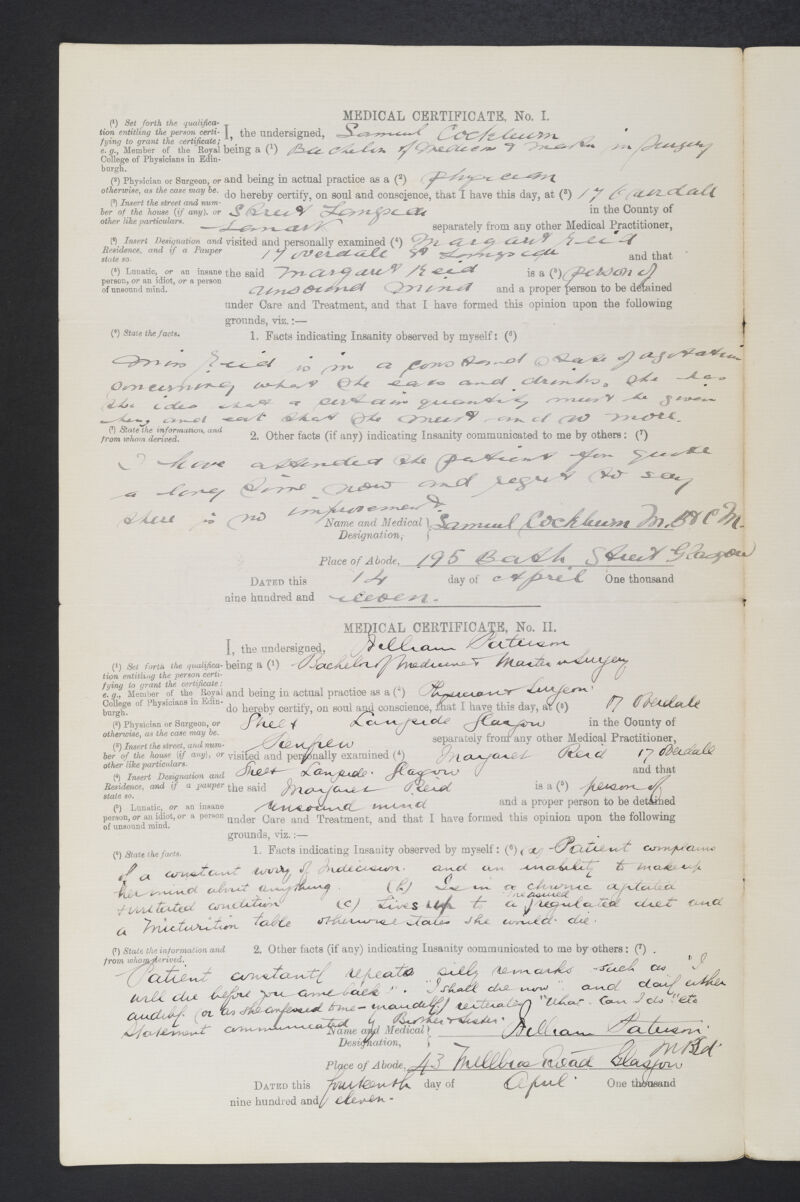 MEDICAL CERTIFICATE, No. I.
(¹) Set forth the qualifica-
tion entitling the person certi-
fying to grant the certificate;
e.g., Member of the Royal
College of Physicians in Edin-
burgh.
(²) Physician or Surgeon, or
otherwise, as the case may be.
(³) Insert the street and num-
ber of the house (if any), or
other like particulars.
(⁴) Insert Designation and
Residence, and if a Pauper
state so.
(⁵) Lunatic, or an insane
person, or an idiot, or a person
of unsound mind.
I, the undersigned, Samuel Cockburn
being a (¹) Bachelor of Medicine & Master in Surgery
and being in actual practice as a (²) physician
do hereby certify, on soul and conscience, that I have this day, at (³) 17 Overdale
Street Langside in the County of
Lanark separately from any other Medical Practitioner,
visited and personally examined (⁴) Margaret Reid
17 Overdale St Langside and that
the said Margaret Reid is a (⁵) person of
unsound mind and a proper person to be detained
under Care and Treatment, and that I have formed this opinion upon the following
grounds, viz.:—
(⁶) State the facts.
1. Facts indicating Insanity observed by myself: (⁶)
Miss Reid is in a constant state of agitation
concerning what she eats and drinks. She has
the idea that a certain quantity must be given
her, and eat that she must and no more.
(⁷) State the information, and
from whom derived.
2. Other facts (if any) indicating Insanity communicated to me by others: (⁷)
I have attended the patient for quite
a long time now and regret to say
there is no improvement.
Name and Medical Designation, Samuel Cockburn M.B & C.M.
Place of Abode, 195 Bath Street Glasgow
DATED this 14 day of April One thousand
nine hundred and eleven.
MEDICAL CERTIFICATE, No. II.
(¹) Set forth the qualifica-
tion entitling the person certi-
fying to grant the certificate:
e.g., Member of the Royal
College of Physicians in Edin-
burgh.
(²) Physician or Surgeon, or
otherwise, as the case may be.
(³) Insert the street, and num-
ber of the house (if any), or
other like particulars.
(⁴) Insert Designation and
Residence, and if a pauper
state so.
(⁵) Lunatic, or an insane
person, or an idiot, or a person
of unsound mind.
I, the undersigned, William Paterson
being a (¹) Bachelor of Medicine & Master in Surgery
and being in actual practice as a (²) Physician & Surgeon.
do hereby certify, on soul and conscience, that I have this day, at (³) 17 Overdale
Street Langside Glasgow in the County of
Renfrew separately from any other Medical Practitioner,
visited and personally examined (⁴) Margaret Reid 17 Overdale
Street Langside. Glasgow and that
the said Margaret Reid is a (⁵) person of
unsound mind and a proper person to be detained
under Care and Treatment, and that I have formed this opinion upon the following
grounds, viz.:—
(⁶) State the facts.
1. Facts indicating Insanity observed by myself: (⁶) (a) Patient complains
of a constant worry of Indecision. and an inability to make up
her mind about anything. (b) Is in a chronic agitated
& irritated condition (c) Lives up to a measured regulated diet and
a micturition table otherwise states she would die.
(⁷) State the information and
from whom derived.
2. Other facts (if any) indicating Insanity communicated to me by others: (⁷)
Patient constantly repeats silly remarks such as "I
will die before you come back". "I shall die now" and daily
(or as she confessed to me - mandatory) reiterates "What Can I do" etc
Statement communicated by Brother & Sister.
Name and Medical Designation, William Paterson.
M.B.
Place of Abode, 43 Millbrae Road Glasgow
DATED this fourteenth day of April. One thousand
nine hundred and eleven.